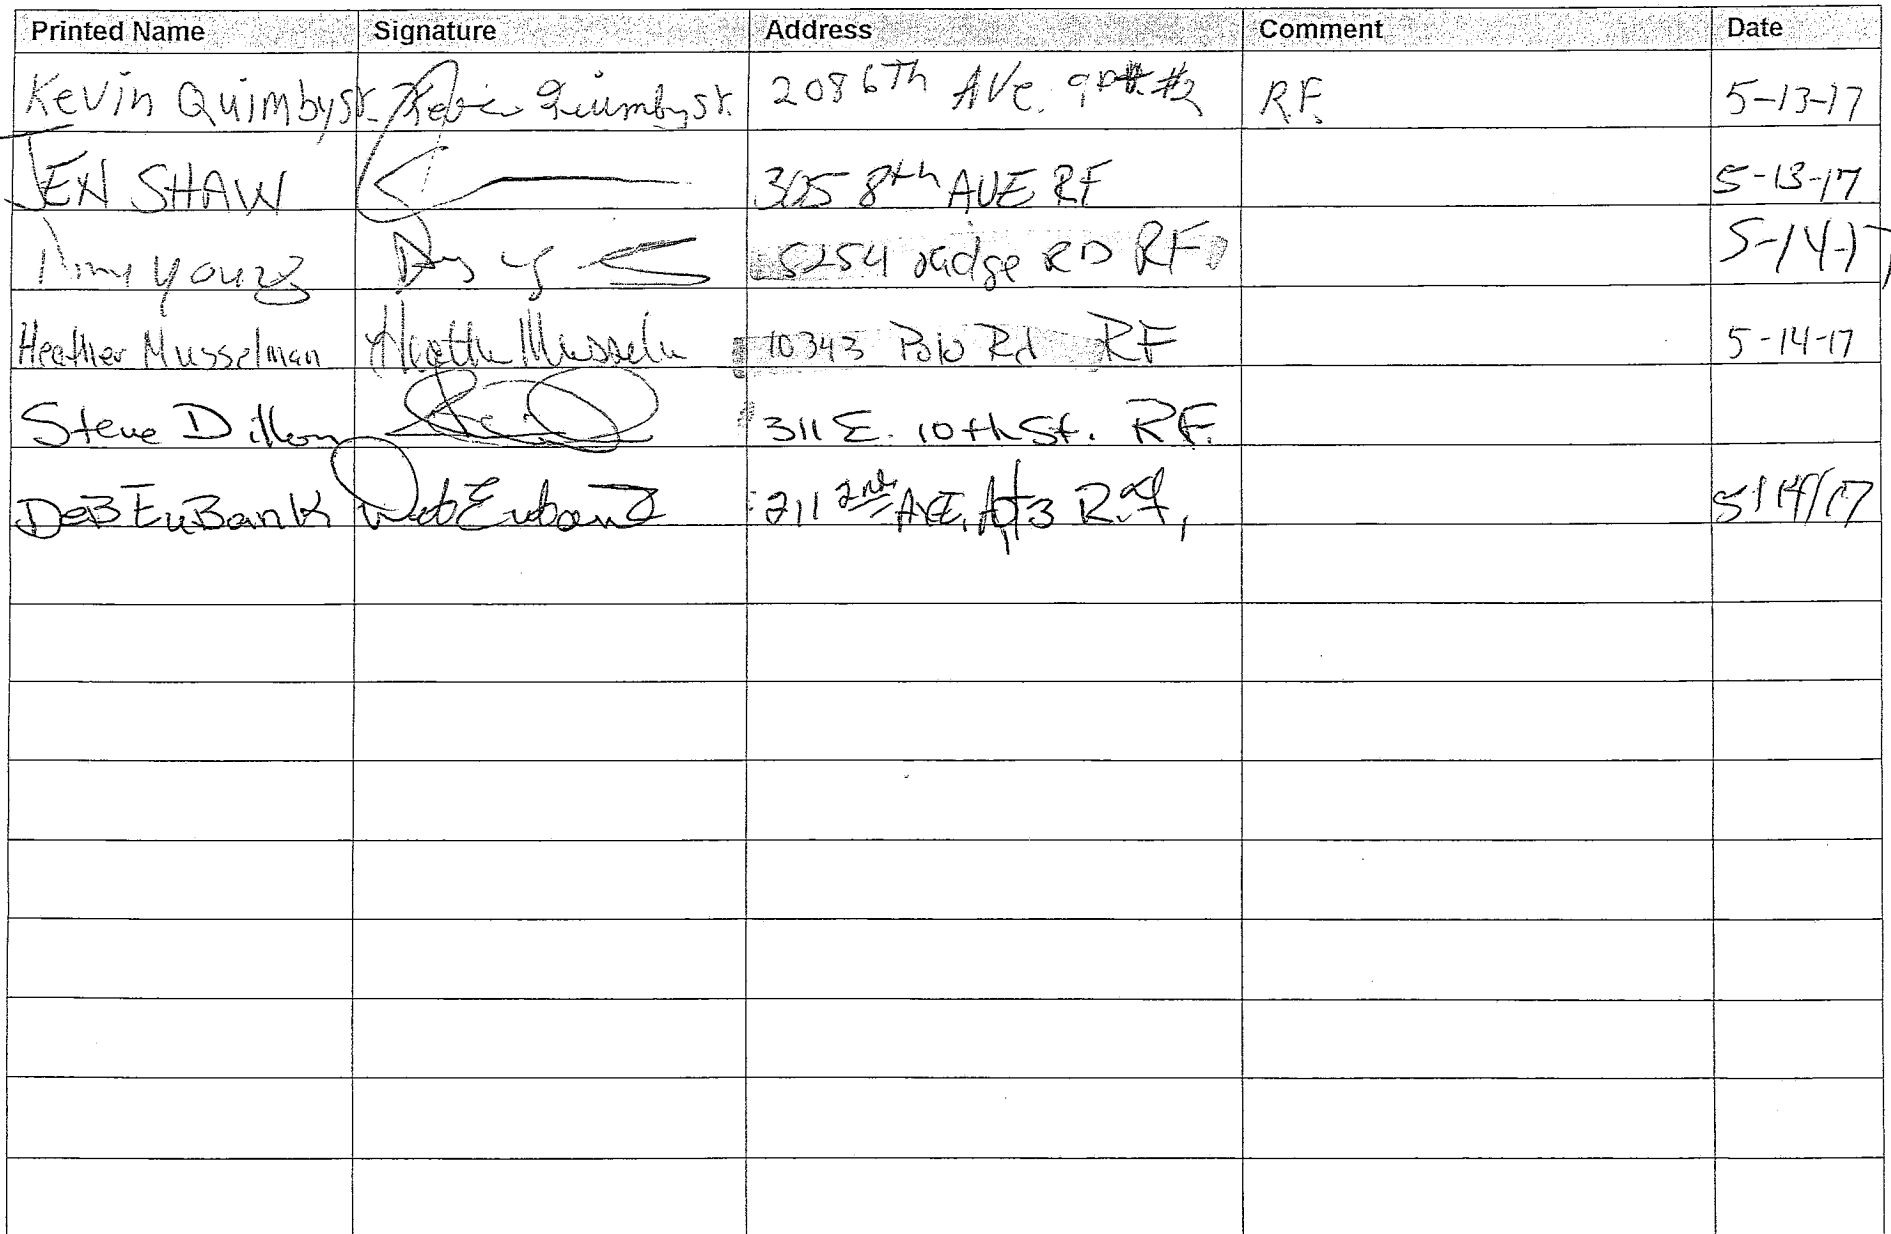 Printed Name Signature Address Comment Date
Kevin Quimby sr. Kevin Quimby sr. 208 6Th AVe. apt. #2 R.F. 5-13-17
JEN SHAW 305 8th AVE RF 5-13-17
Amy Young 5254 ridge RD RF 5-14-17
Heather Musselman Heather Musselm 10343 Polo Rd RF 5-14-17
Steve Dillon 311 E. 10th St. R.F.
DeB EuBank Deb Eubank 211 2nd AVE, Apt 3 R.f, 5/14/17